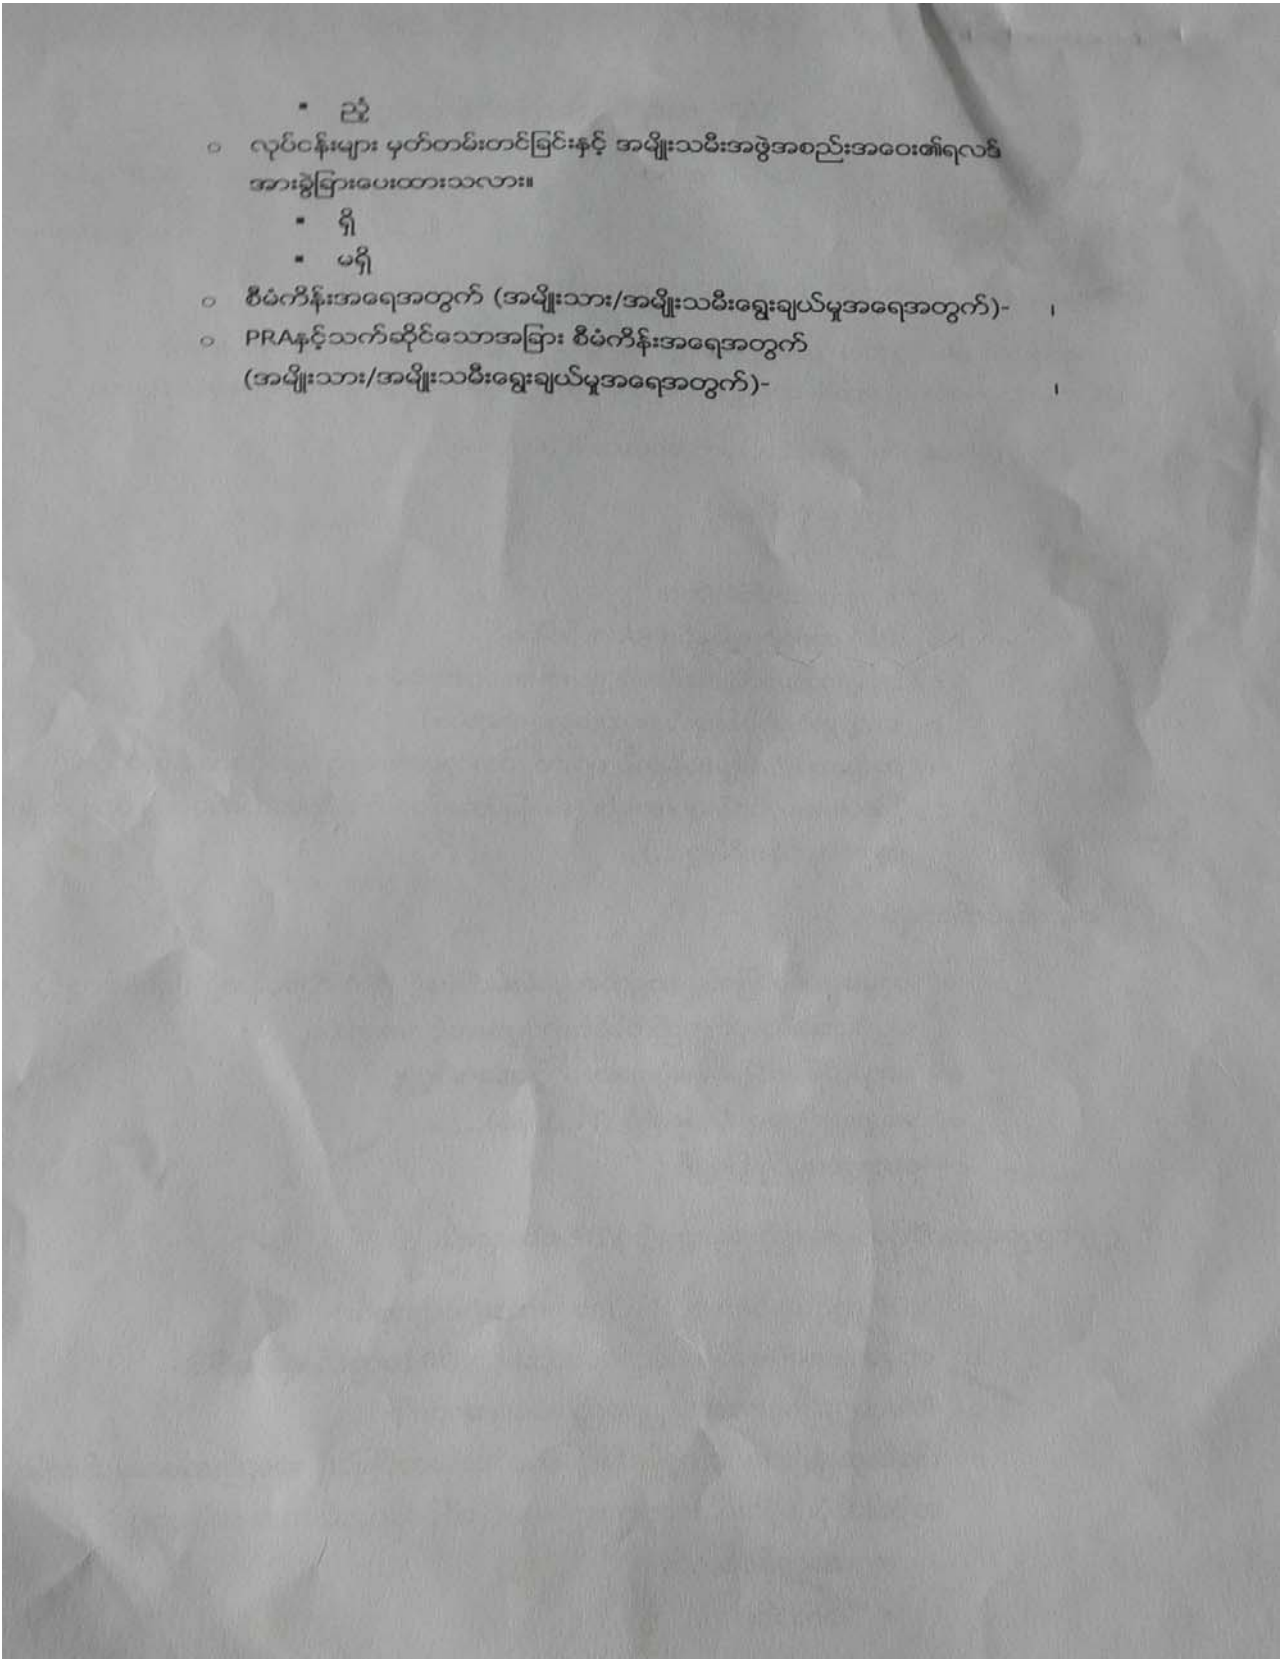 ▪ ညံ့
○ လုပ်ငန်းများ မှတ်တမ်းတင်ခြင်းနှင့် အမျိုးသမီးအဖွဲ့အစည်းအဝေး၏ရလဒ်
အားခွဲခြားပေးထားသလား။
▪ ရှိ
▪ မရှိ
○ စီမံကိန်းအရေအတွက် (အမျိုးသား/အမျိုးသမီးရွေးချယ်မှုအရေအတွက်)- ၊
○ PRAနှင့်သက်ဆိုင်သောအခြား စီမံကိန်းအရေအတွက်
(အမျိုးသား/အမျိုးသမီးရွေးချယ်မှုအရေအတွက်)- ၊